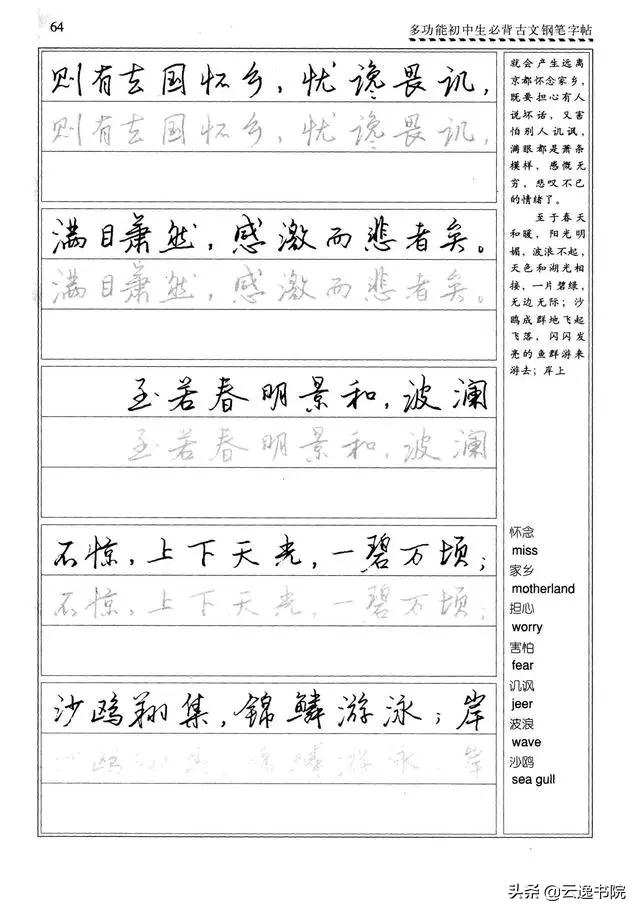 64
多功能初中生必背古文钢笔字帖
则有去国怀乡，忧谗畏讥，
则有去国怀乡，忧谗畏讥，
满目萧然，感激而悲者矣。
满目萧然，感激而悲者矣。
至若春明景和，波澜
至若春明景和，波澜
不惊，上下天光，一碧万顷；
不惊，上下天光，一碧万顷；
沙鸥翔集，锦鳞游泳；岸
沙鸥翔集，锦鳞游泳；岸
就会产生远离
京都怀念家乡，
既要担心有人
说坏话，又害
怕别人讥讽，
满眼都是萧条
模样，感慨无
穷，悲叹不已
的情绪了。
至于春天
和暖，阳光明
媚，波浪不起，
天色和湖光相
接，一片碧绿，
无边无际；沙
鸥成群地飞起
飞落，闪闪发
亮的鱼群游来
游去；岸上
怀念
miss
家乡
motherland
担心
worry
害怕
fear
讥讽
jeer
波浪
wave
沙鸥
sea gull
头条@云逸书院